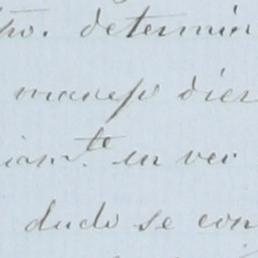 po. determin
manejo dier
iamte en ver
dudo se con